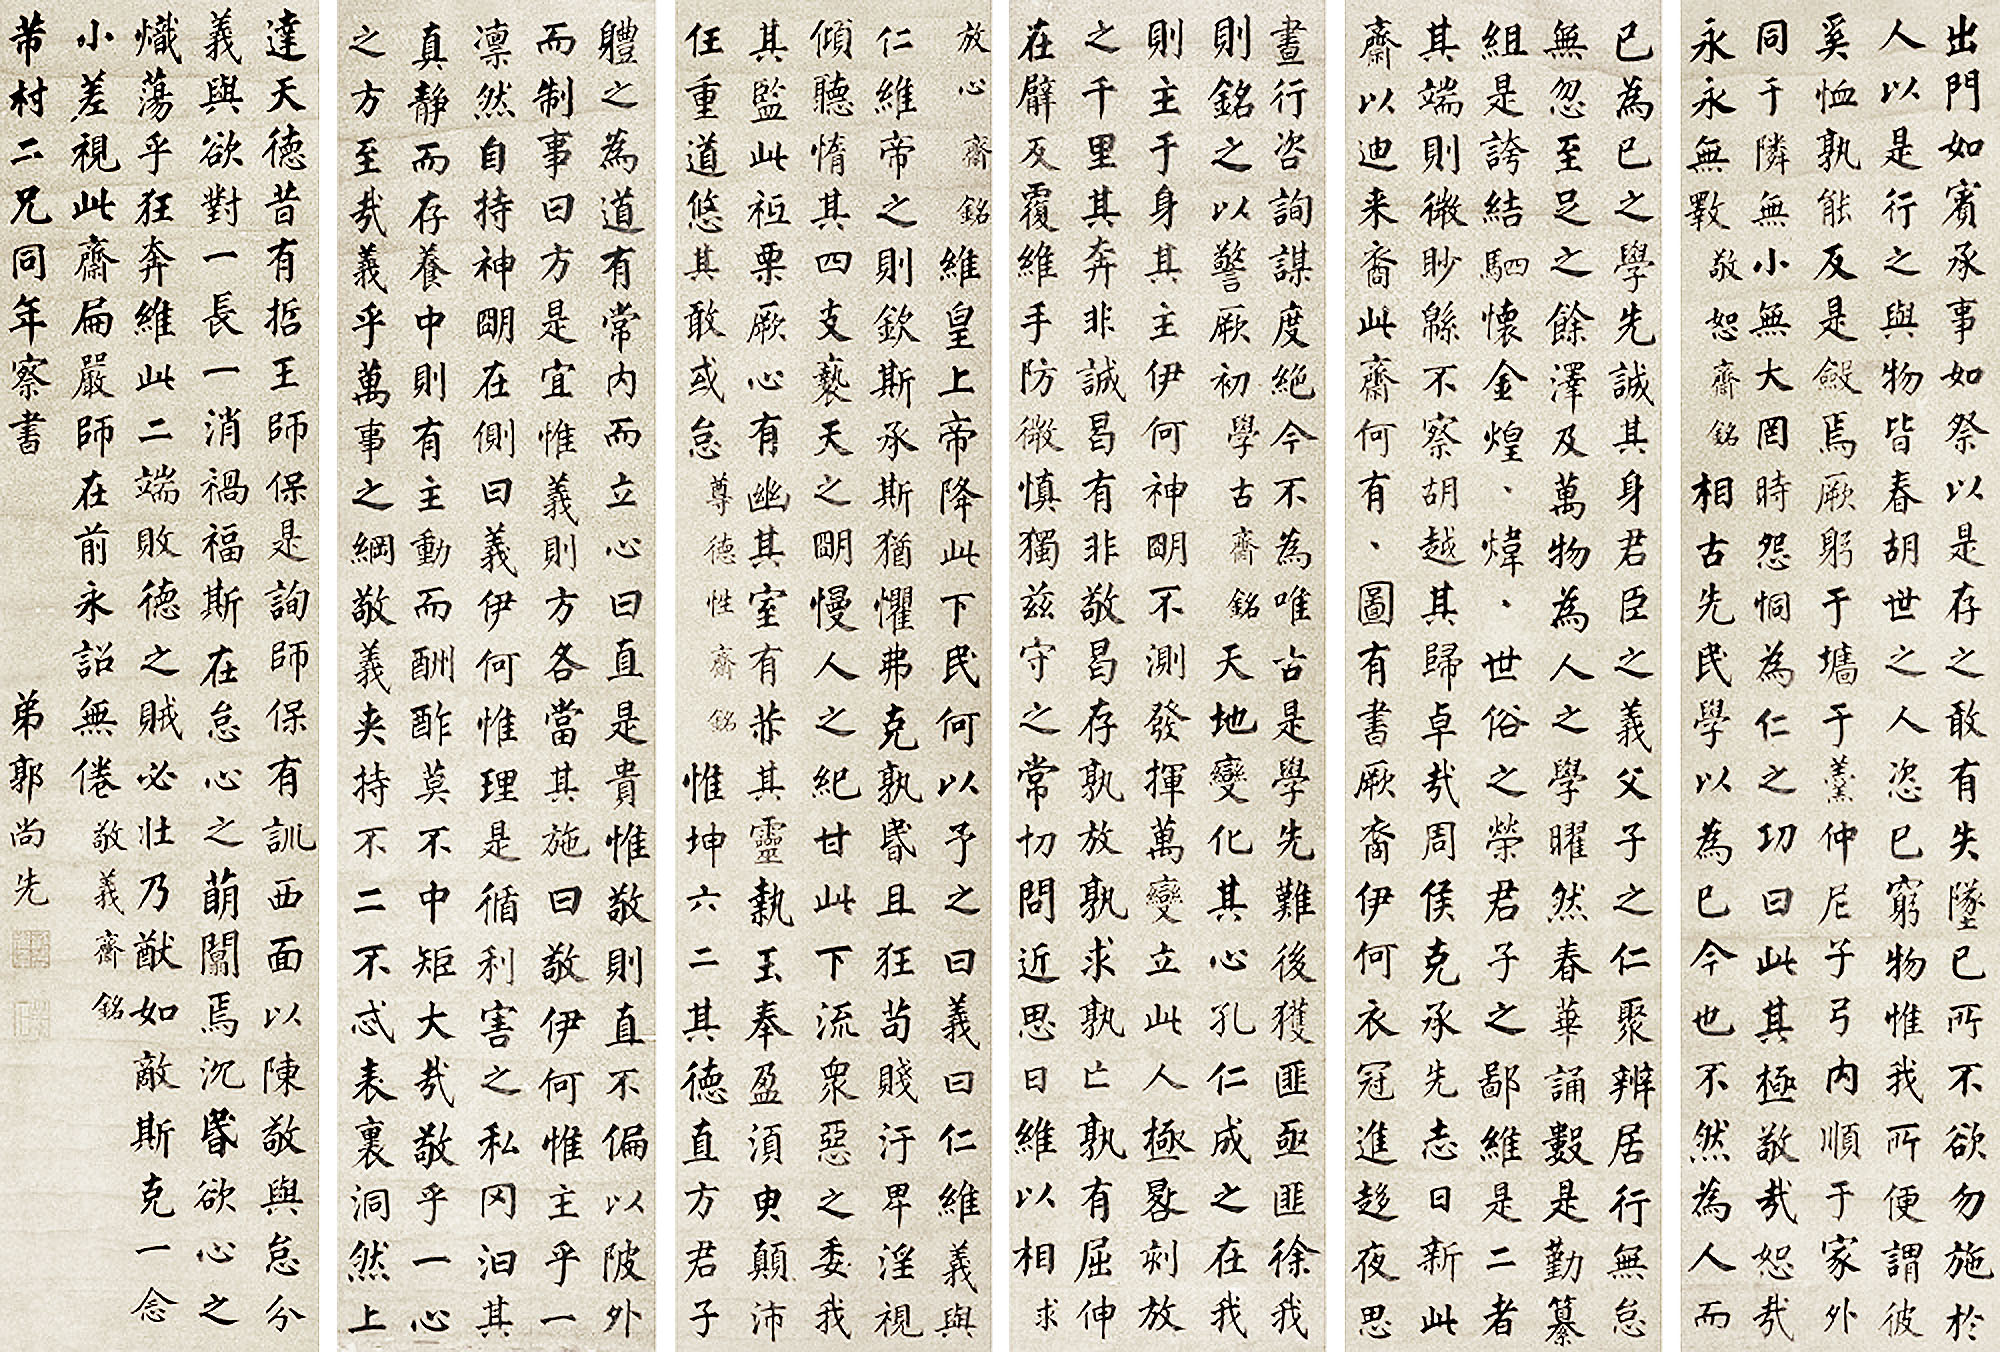 出門如賓承事如祭以是存之敢有失墜己所不欲勿施於
人以是行之與物皆春胡世之人恣己窮物惟我所便謂彼
奚恤孰能反是斂焉厥躬于墻于羹仲尼子弓内順于家外
同于隣無小無大罔時怨恫為仁之功曰此其極敬哉恕哉
永永無斁 敬恕齋銘 相古先民學以為己今也不然為人而
已為己之學先誠其身君臣之義父子之仁聚辨居行無怠
無忽至足之餘澤及萬物為人之學曜然春華誦數是勤纂
組是誇結駟懷金煌、煒、世俗之榮君子之鄙維是二者
其端則微眇緜不察胡越其歸卓哉周侯克承先志日新此
齋以迪来裔此齋何有、圖有書厥裔伊何衣冠進趍夜思
晝行咨詢謀度絶今不為唯古是學先難後獲匪亟匪徐我
則銘之以警厥初 學古齋銘 天地變化其心孔仁成之在我
則主于身其主伊何神明不測發揮萬變立此人極晷刻放
之千里其奔非誠曷有非敬曷存孰放孰求孰亡孰有屈伸
在臂反覆維手防微慎獨兹守之常切問近思曰維以相 求
放心齋銘 維皇上帝降此下民何以予之曰義曰仁維義與
仁維帝之則欽斯承斯猶懼弗克孰昏且狂苟賤汙卑淫視
傾聽惰其四支褻天之明慢人之紀甘此下流衆惡之委我
其監此祗栗厥心有幽其室有恭其靈執玉奉盈須臾顛沛
任重道悠其敢或怠 尊德性齋銘 惟坤六二其德直方君子
軆之為道有常内而立心曰直是貴惟敬則直不偏以陂外
而制事曰方是宜惟義則方各當其施曰敬伊何惟主乎一
凛然自持神明在側曰義伊何惟理是循利害之私罔汨其
真静而存養中則有主動而酬酢莫不中矩大哉敬乎一心
之方至哉義乎萬事之綱敬義夾持不二不忒表裏洞然上
達天德昔有哲王師保是詢師保有訓西面以陳敬與怠分
義與欲對一長一消禍福斯在怠心之萌闒焉沉昏欲心之
熾蕩乎狂奔維此二端敗德之賊必壮乃猷如敵斯克一念
小差視此齋扁嚴師在前永詔無倦 敬義齋銘
芾村二兄同年察書 弟郭尚先